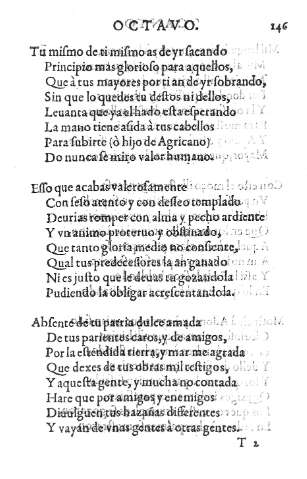 OCTAVO. 146
Tu mismo de ti mismo as de yr sacando
Principio mas glorioso para aquellos,
Que à tus mayores por ti an de yr sobrando,
Sin que lo quedes tu destos ni dellos,
Leuanta que ya el hado esta esperando
La mano tiene asida à tus cabellos
Para subirte (ò hijo de Agricano)
Do nunca se miro valor humano.
Esso que acabas valerosamente
Con seso atento y con desseo templado
Deurias romper con alma y pecho ardiente
Y vn animo proteruo y obstinado,
Que tanto gloria medio no consiente,
Qual tus predecessores la an ganado
Ni es justo que le deuas tu gozandola
Pudiendo la obligar acrescentandola.
Absente de tu patria dulce amada
De tus parientes caros, y de amigos,
Por la estendida tierra, y mar me agrada
Que dexes de tus obras mil testigos,
Y aquesta gente, y mucha no contada
Hare que por amigos y enemigos
Diuulguen tus hazañas differentes
Y vayan de vnas gentes à otras gentes.
T 2